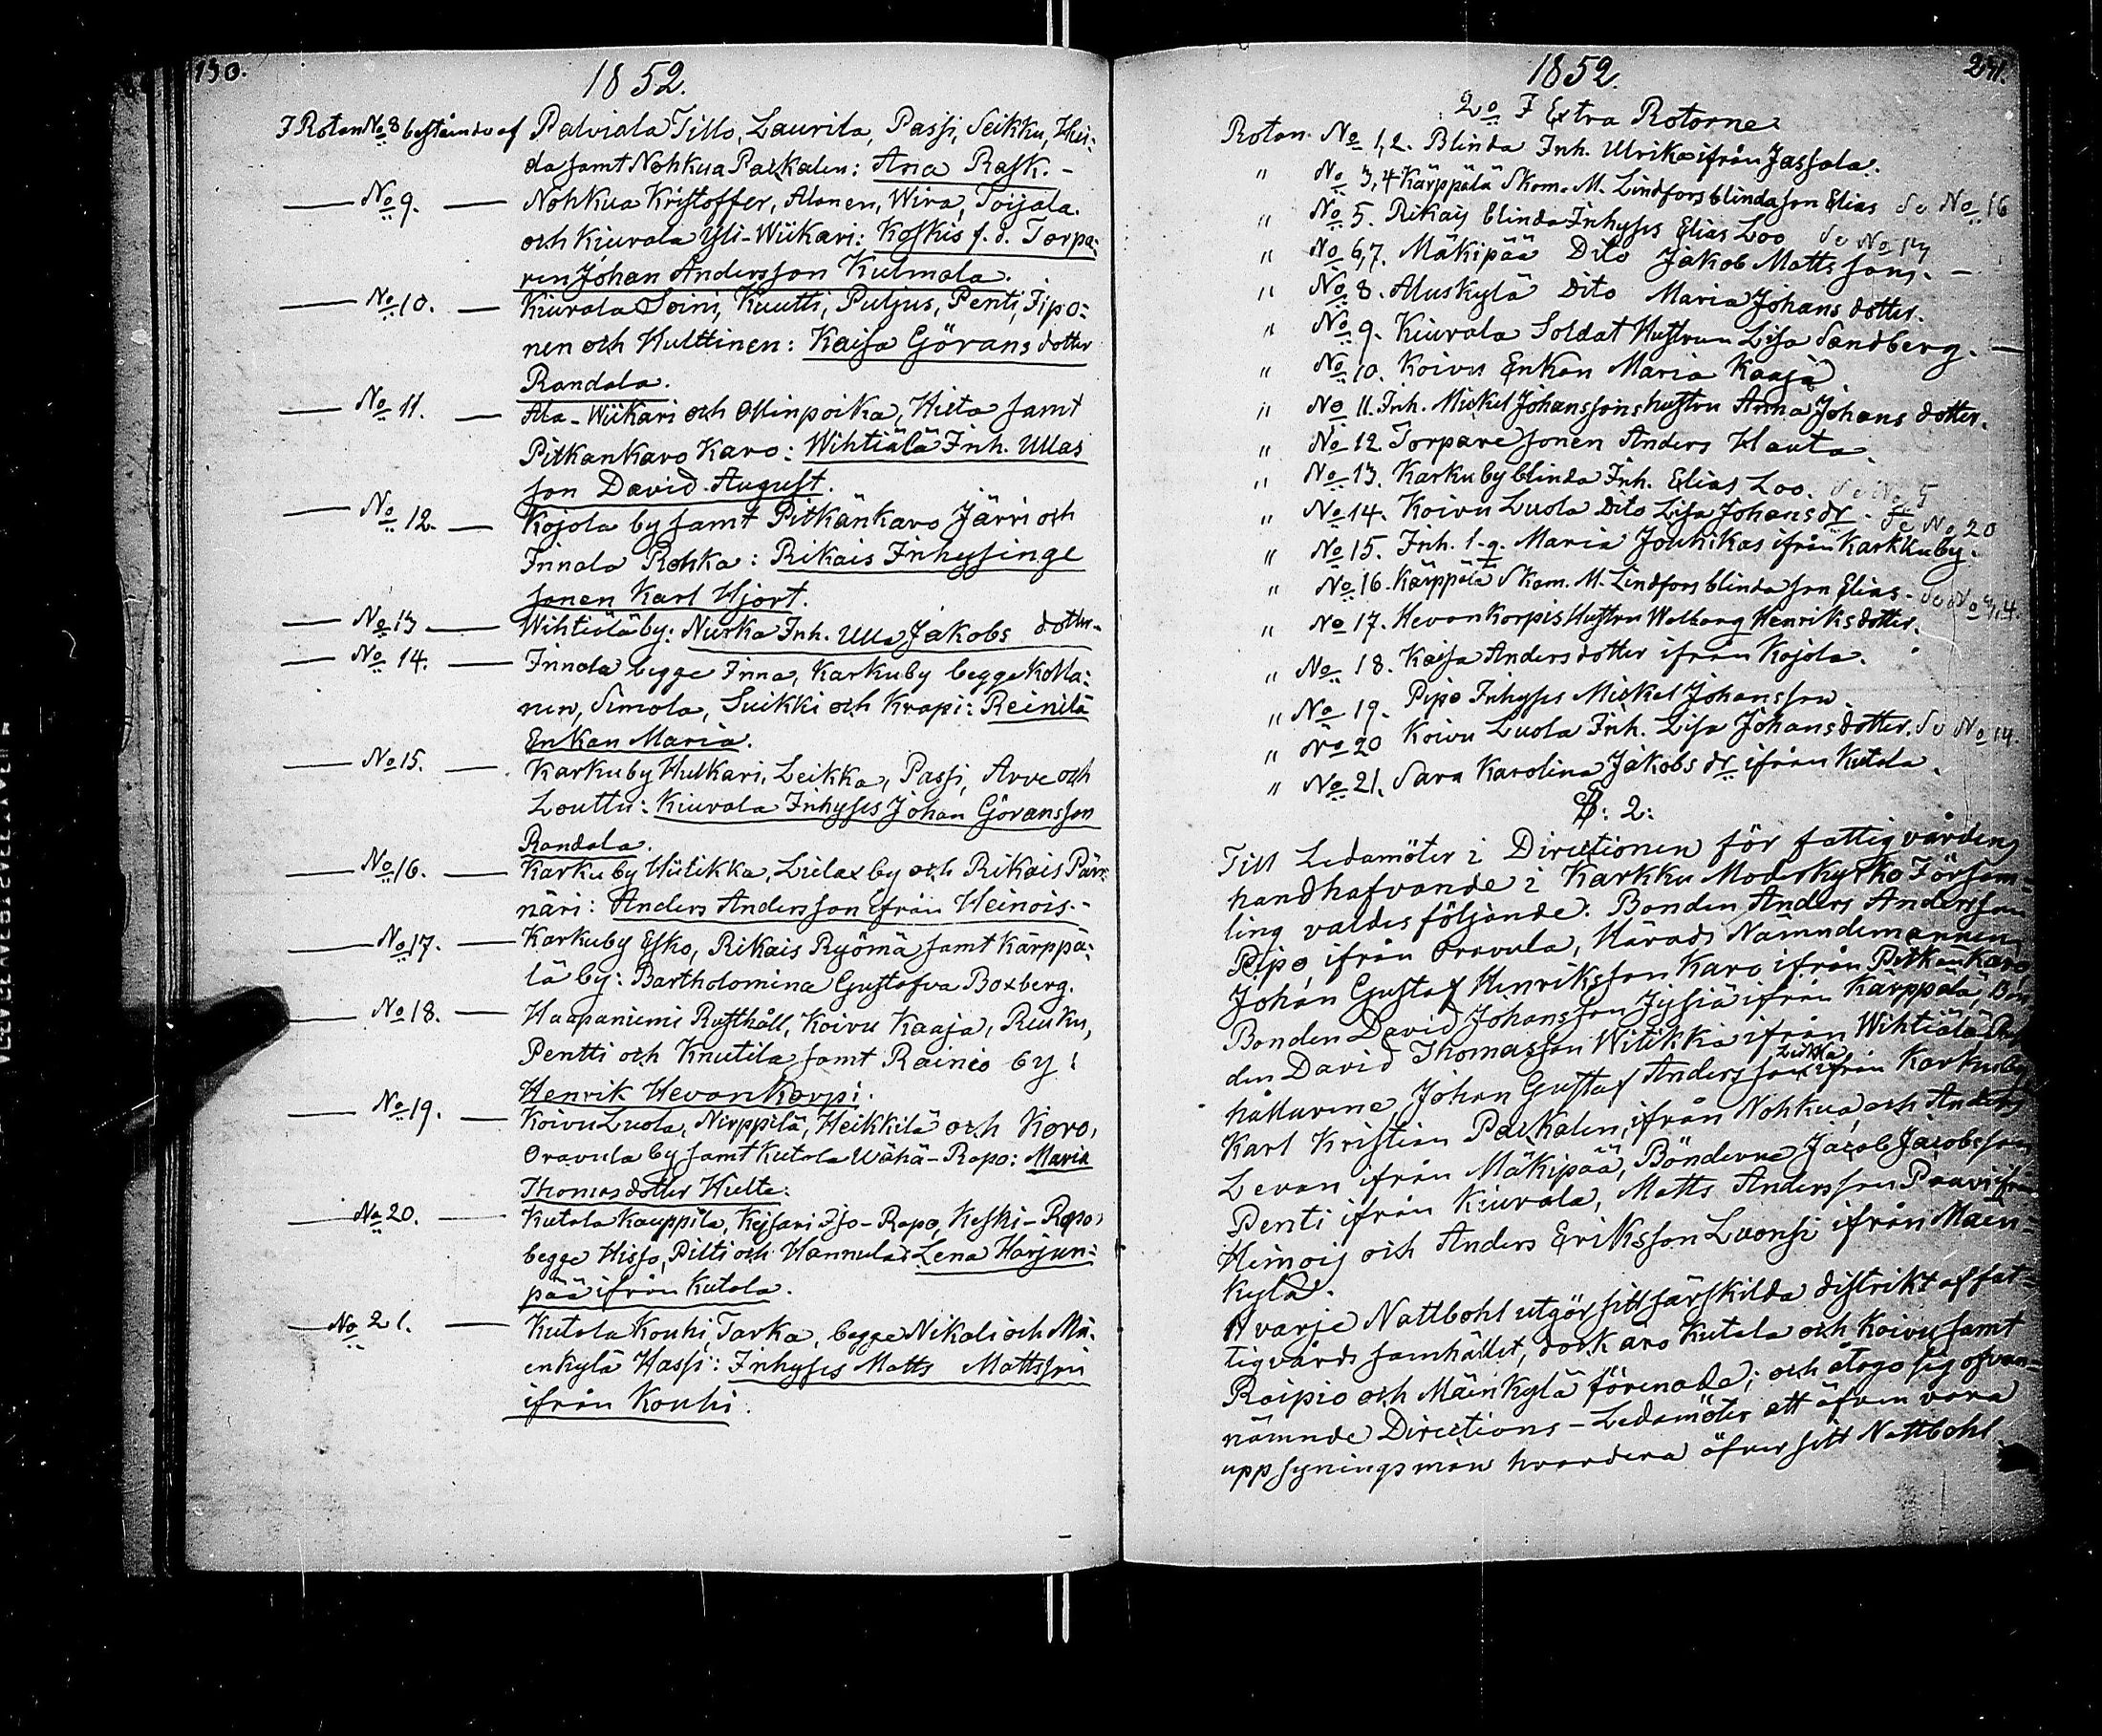 130.
1852.
I Rotan No 8 bestående af Palviala Tillo, Laurila, Passi, Seikku, Hei-
da samt Nohkua Parkalen: Ana Rask. -
No 9. Nohkua Kristoffer, Alanen, Wira, Toijala.
och Kiurala Yli-Wiikari: Koskis f. d. Torpa-
ren Johan Andersson Kulmala.
No 10. Kiurala Soini, Kuutti, Puljus, Penti, Sipo-
nen och Hulttinen: Kaisa Görans dotter
Randala.
No 11. Ala-Wiikari och Ollinpoika, Hieta samt
Pitkankaro Karo: Wihtiälä Inh. Ullas
son David August.
No 12. Kojola by samt Pitkänkaro Järri och
Innala Rohka: Rikais Inhysinge
sonen Karl Hjort.
No 13 Wihtiälä by: Nurka Inh. Ulla Jakobs dotter.
No 14. Innala begge Inna, Karkuby begge Kolla-
nen, Simola, Suikki och Krapi: Reinilä
Enkan Maria.
No 15. Karkuby Hulkari, Leikka, Passi, Arve och
Louttu: Kiurala Inhyses Johan Göransson
Randala.
No 16. Karkuby Hiitikka, Lielax by och Rikais Pär-
näri: Anders Andersson ifrån Heinois.-
No 17. Karkuby Esko, Rikais Ryömä samt Kärppä-
lä by: Bartholomina Gustafva Boxberg.
No 18. Haapaniemi Rusthåll, Koivu Kaaja, Reuku,
Pentti och Knutila samt Rainio by:
Henrik Hevonkorpi.
No 19. Koivu Luola, Nirppilä, Heikkilä och Koro,
Oravula by samt Kutala Wähä-Rapo: Maria
Thomas dotter Hulta.
No 20. Kutala Kauppila, Keisari Iso-Rapo, Keski-Rapo,
begge Hisso, Pilti och Hannula: Lena Harjun-
pää ifrån Kutala.
No 21. Kutala Kouhi, Tarka, begge Nikali och Mä-
enkylä Hassi: Inhyses Matts Mattsson
ifrån Kouhi.
1852.
2o I Extra Rotorne
Rotan No 1, 2. Blinda Inh. Ulrika ifrån Jassala.
" No 3, 4 Kärppälä Skom. M. Lindfors blinda son Elias Se No 16
" No 5. Rikais blinda Inhyses Elias Loo Se No 13
" No 6, 7. Mäkipää Dito Jakob Mattsson. -
" No 8. Aluskylä Dito Maria Johans dotter.
" No 9. Kiurala Soldat Hustrun Lisa Sandberg. -
" No 10. Koivu Enkan Maria Kaaja
" No 11. Inh. Mickel Johanssons hustru Anna Johans dotter.
" No 12 Torpare sonen Anders Hauta.
" No 13. Karkuby blinda Inh. Elias Loo. Se No 5
" No 14. Koivu Luola Dito Lisa Johans dr. Se No 20
" No 15. Inh. Maria Jouhikas ifrån Karkkuby.
" No 16. Kärppälä Skom. M. Lindfors blinda son Elias. Se No 3, 4.
" No 17. Hevonkorpis Hustru Walborg Henriksdotter.
" No 18. Kaisa Anders dotter ifrån Kojola.
" No 19. Pipo Inhyses Mickel Johansson.
" No 20 Koivu Luola Inh. Lisa Johansdotter. Se No 14
" No 21. Sara Karolina Jakobs dr ifrån Kutala.
§: 2:
Till Ledamöter i Directionen för fattigvårdens
handhafvande i Karkku Moderkyrko Försam-
ling valdes följande: Bonden Anders Andersson
Pipo, ifrån Oravula, Härads Nämndemannen
Johan Gustaf Henriksson Karo ifrån Pitkankaro
Bonden David Johansson Jysiä ifrån Kärppälä, Bon-
den David Thomasson Wilikka ifrån Wihtiälä,
hållarene, Johan Gustaf Andersson Leikka ifrån Karkuby
Karl Kristian Parkalen, ifrån Nohkua och Anders
Levan ifrån Mäkipää, Bönderne Jacob Jacobsson
Penti ifrån Kiurala, Matts Andersson Paavi ifrån
Heinois och Anders Eriksson Luonsi ifrån Mäen-
kylä.
Hvarje Nattbohl utgör sitt särskilda distrikt af fat-
tigvårds samhället, dock äro Kutala och Koivu samt
Roipio och Mäenkylä förenade; och åtogo sig ofvan-
nämnde Directions-Ledamöter att äfven vara
uppsyningsmän hvardera öfver sitt Nattbohl.